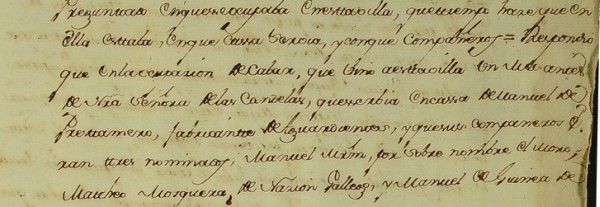 Preguntado enquese ocupaba enesttavilla, quetiempo hace que en
ella esttaba, enque cassa servia, y conque Compañeros = Respondio
que enla ocupazion de Cabar, que vino aesttavilla un Mes antes
de Ntra señora delas Candelas, queserbia encassa de Manuel de
Prestamero, fabricante de Aguardientes, y quesus companeros
ran tres nominados, Manuel Mrn, por sobre nombre el Moro,
Matheo Mosquera, de Nazion Gallego, y Manuel de Guinea de